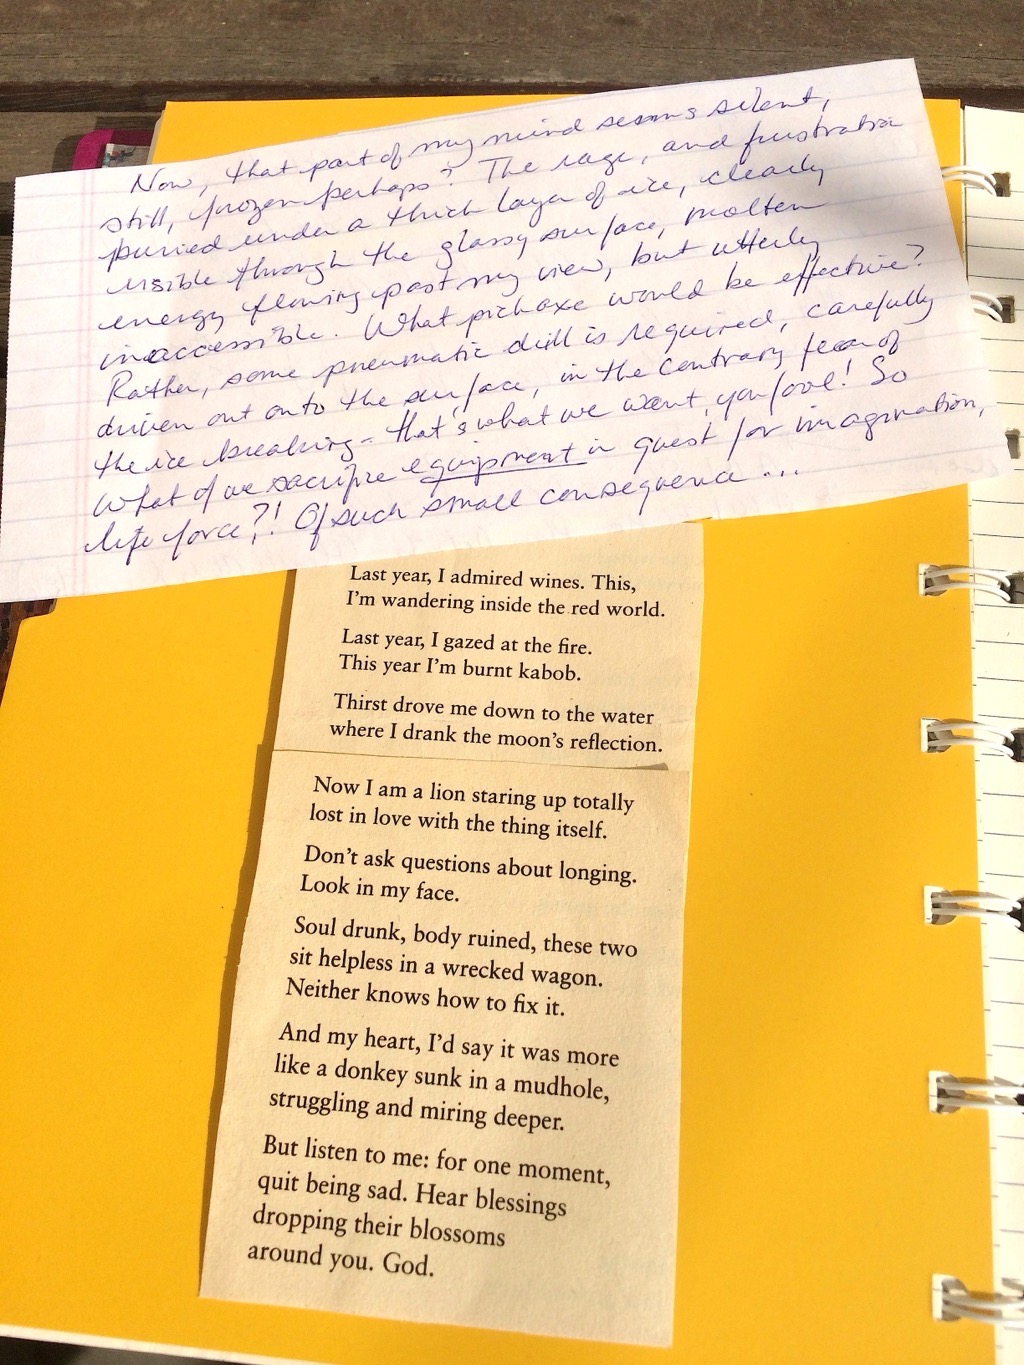 Now, that part of my mind seems silent,
still, frozen perhaps? The rage, and frustration
buried under a thick layer of ice, clearly
visible through the glassy surface, molten
energy flowing past my view, but utterly
inaccessible. What pickaxe would be effective?
Rather, some pneumatic drill is required, carefully
driven out onto the surface, in the contrary fear of
the ice breaking - that's what we want, you fool! So
what if we sacrifice equipment in quest for imagination,
life force?! Of such small consequence ...
Last year, I admired wines. This,
I'm wandering inside the red world.
Last year, I gazed at the fire.
This year I'm burnt kabob.
Thirst drove me down to the water
where I drank the moon's reflection.
Now I am a lion staring up totally
lost in love with the thing itself.
Don't ask questions about longing.
Look in my face.
Soul drunk, body ruined, these two
sit helpless in a wrecked wagon.
Neither knows how to fix it.
And my heart, I'd say it was more
like a donkey sunk in a mudhole,
struggling and miring deeper.
But listen to me: for one moment,
quit being sad. Hear blessings
dropping their blossoms
around you. God.